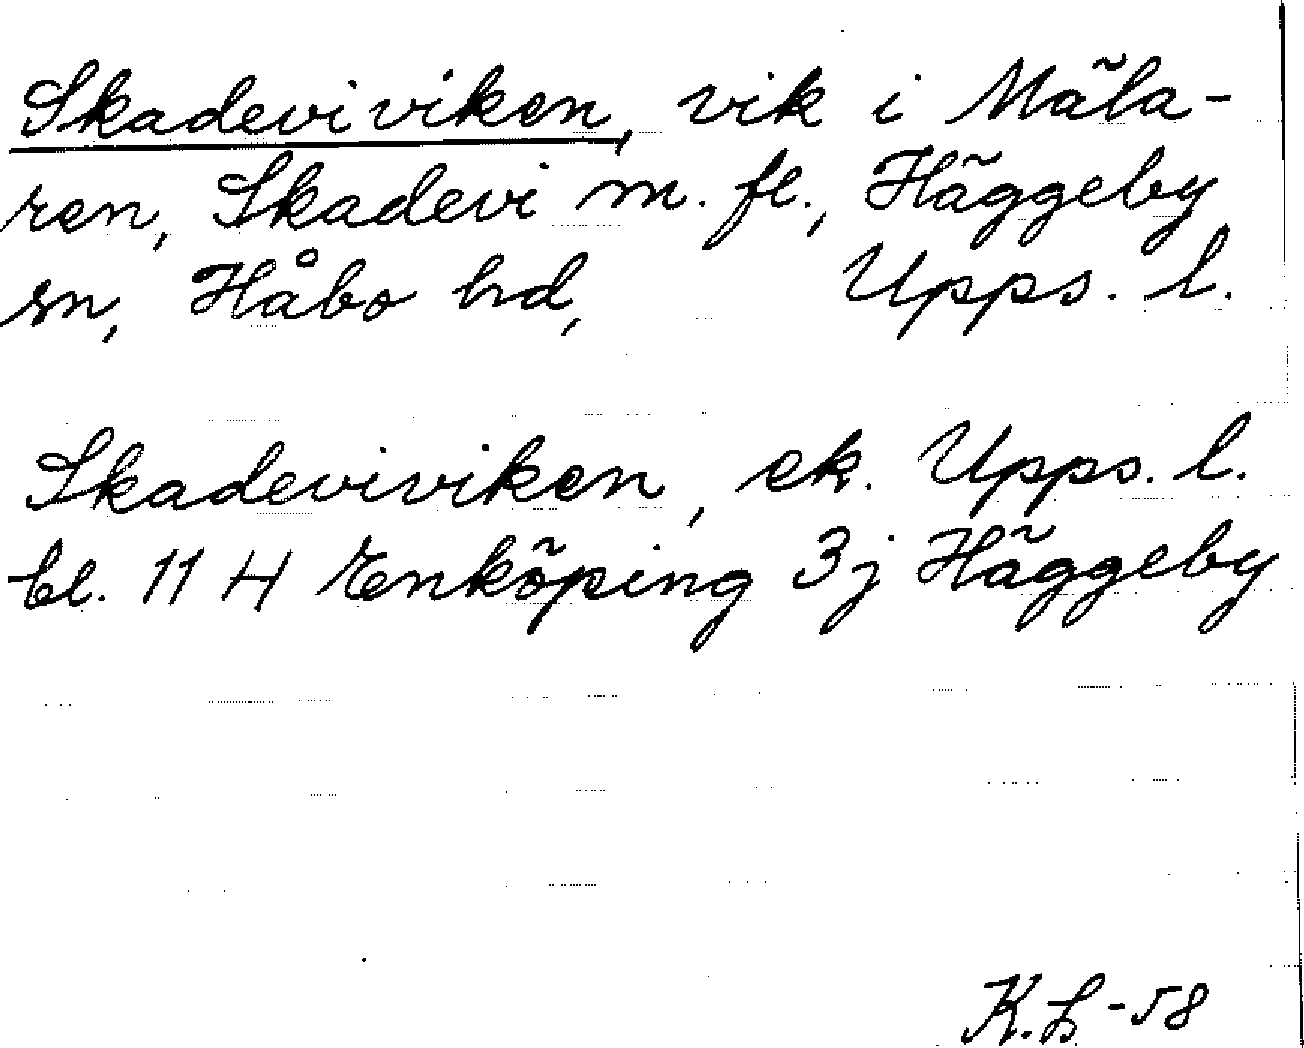 Skadeviviken, vik i Mäla-
ren, Skadevi m. fl., Häggeby
sn, Håbo hd, Upps. l.
Skadeviviken, ek. Upps. l.
bl. 11 H Enköping 3j Häggeby
K.L-58